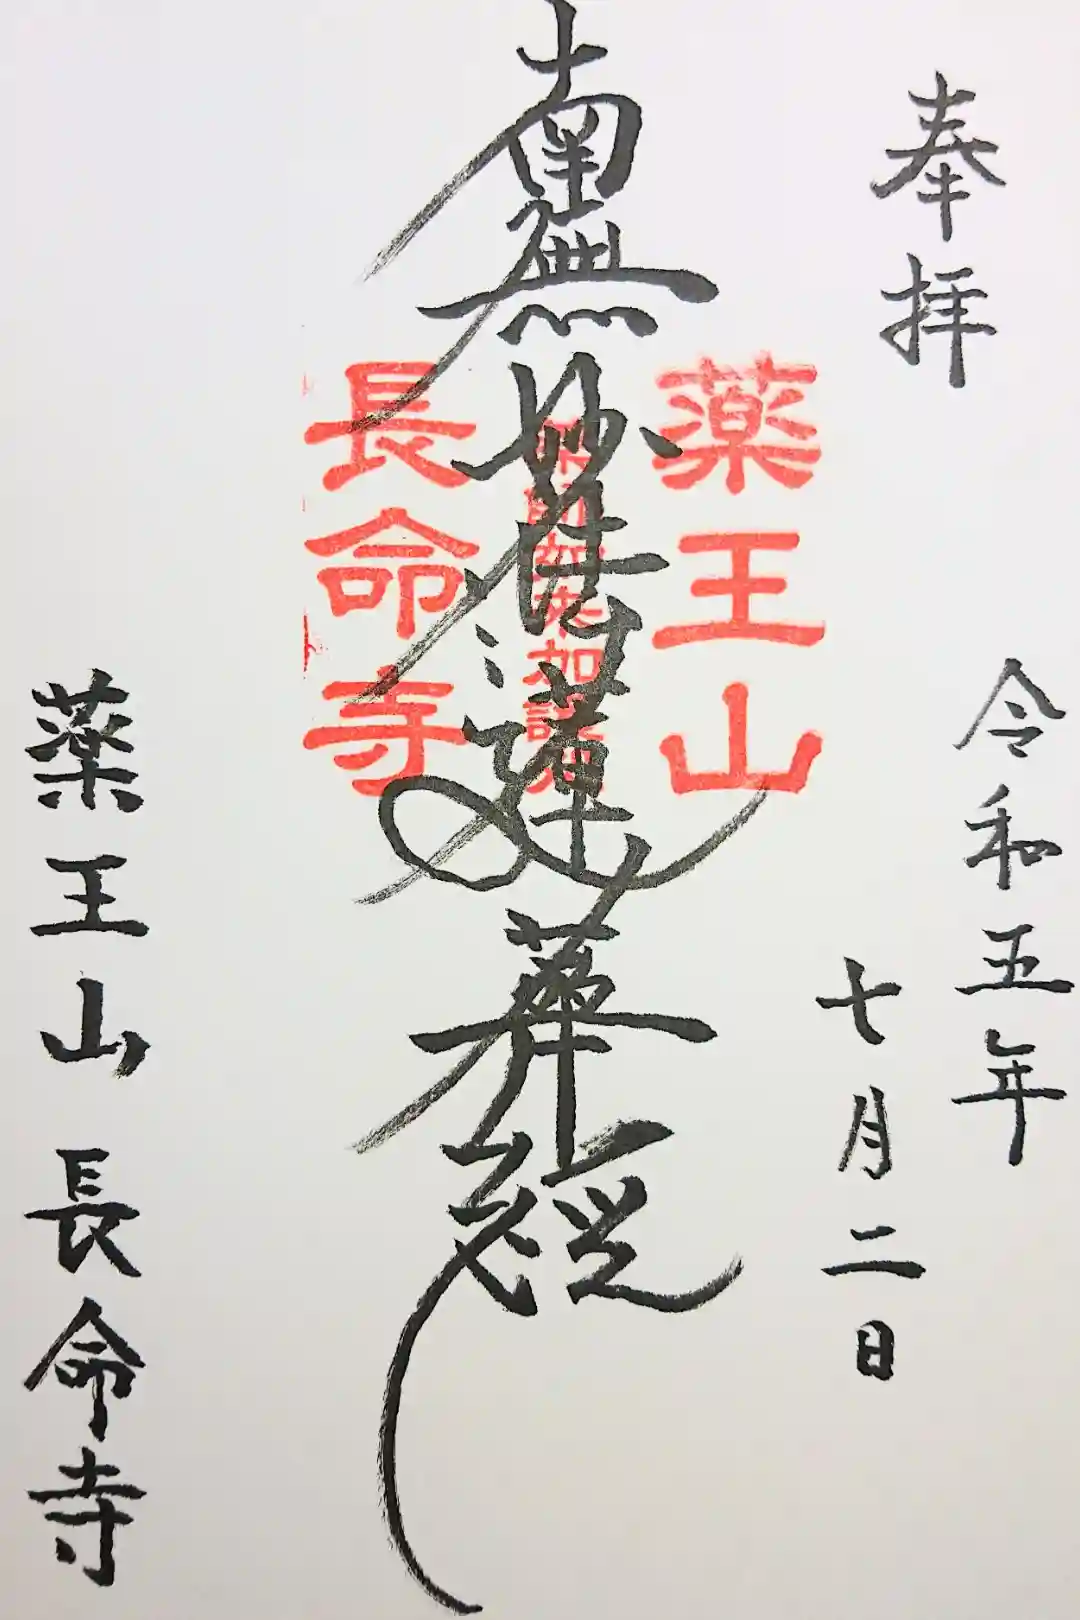 奉拝
令和五年
七月二日
薬王山
南無妙法蓮華経
長命寺
薬王山 長命寺